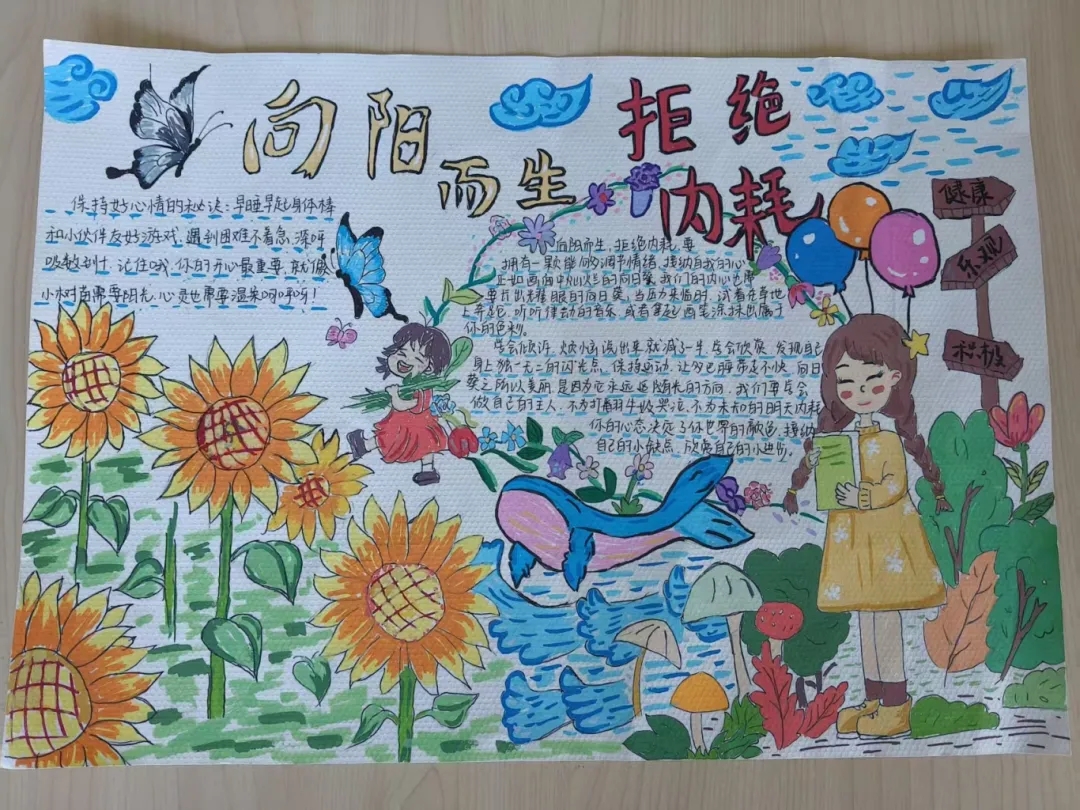 向阳
而生
拒绝
内耗
保持好心情的秘诀：早睡早起身体棒
和小伙伴友好游戏，遇到困难不着急，深呼
吸数到十，记住哦，你的开心最重要，就像
小树苗需要阳光，心灵也需要温柔呵呵呀！
向阳而生，拒绝内耗，要
拥有一颗能够调节情绪，接纳自我的心
正如画面中灿烂的向日葵，我们的内心也需
要开出耀眼的向日葵，当压力来临时，试着在草地
上奔跑，听听律动的音乐，或者拿起画笔涂抹出属于
你的色彩。
学会倾诉，烦恼说出来就减了一半，学会欣赏，发现自己
身上独一无二的闪光点，保持运动，让自己脚步走不快，向日
葵之所以美丽，是因为它永远追随光的方向，我们要学会
做自己的主人，不为打翻牛奶哭泣，不为未知的明天内耗
你的心态决定了你世界的颜色，接纳
自己的小缺点，欣赏自己的小进步。
健康
乐观
积极